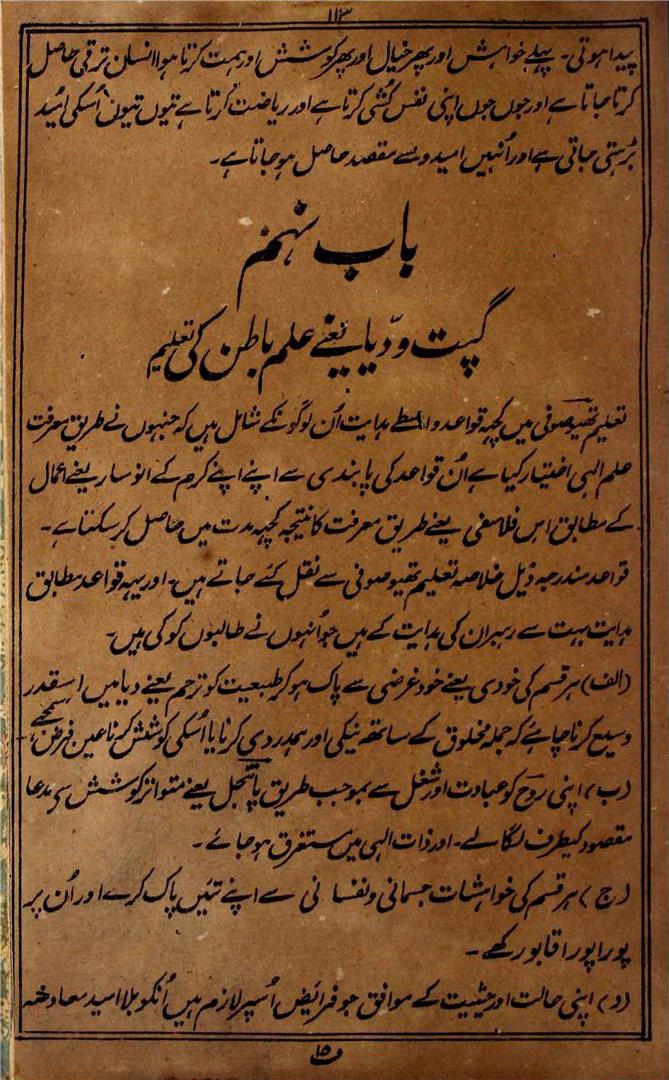 ۱۱۳
پیدا ہوتی۔ پہلے خواہش اور پھر خیال اور پھر کوشش اور ہمت کرتا ہوا انسان ترقی حاصل
کرتا جاتا ہے اور جوں جوں اپنی نفس کُشی کرتا ہے اور ریاضت کرتا ہے تیوں تیوں اُسکی اُمید
بڑہتی جاتی ہے اور اُنہیں امیدوں سے مقصد حاصل ہو جاتا ہے۔
باب نہم
گپت ودّیا یعنے علم باطن کی تعلیم
تعلیم تھیوصوفی میں کچہہ قواعد واسطے ہدایت اُن لوگونکے شامل ہیں کہ جنہوں نے طریق معرفت
علم الٰہی اختیار کیا ہے اُن قواعد کی پابندی سے اپنے اپنے کرم کے انوسار یعنے اعمال
کے مطابق اس فلاسفی یعنے طریق معرفت کا نتیجہ کچہہ مدت میں حاصل کر سکتا ہے۔
قواعد مندرجہ ذیل خلاصہ تعلیم تھیوصوفی سے نقل کئے جاتے ہیں۔ اور یہہ قواعد مطابق
ہدایت بہت سے رہبران کی ہدایت کے ہیں جو اُنہوں نے طالبوں کو کی ہیں۔
(الف) ہر قسم کی خودی یعنے خود غرضی سے پاک ہو کر طبیعت کو ترحم یعنے دیا میں اسقدر
وسیع کرنا چاہئے کہ جملہ مخلوق کے ساتھ نیکی اور ہمدردی کرنا یا اُسکی کوشش کرنا عین فرض سمجھے۔
(ب) اپنی روح کو عبادت اور شغل سے بموجب طریق پاتنجل یعنے متواتر کوشش سے مدعا
مقصود کیطرف لگا لے۔ اور ذات الٰہی میں مستغرق ہو جائے۔
(ج) ہر قسم کی خواہشات جسمانی ونفسانی سے اپنے تئیں پاک کرے اور اُن پر
پورا پورا قابو رکھے۔
(د) اپنی حالت اور حیثیت کے موافق جو فرائیض اُسپر لازم ہیں اُنکو بلا امید معاوضہ
۱۵